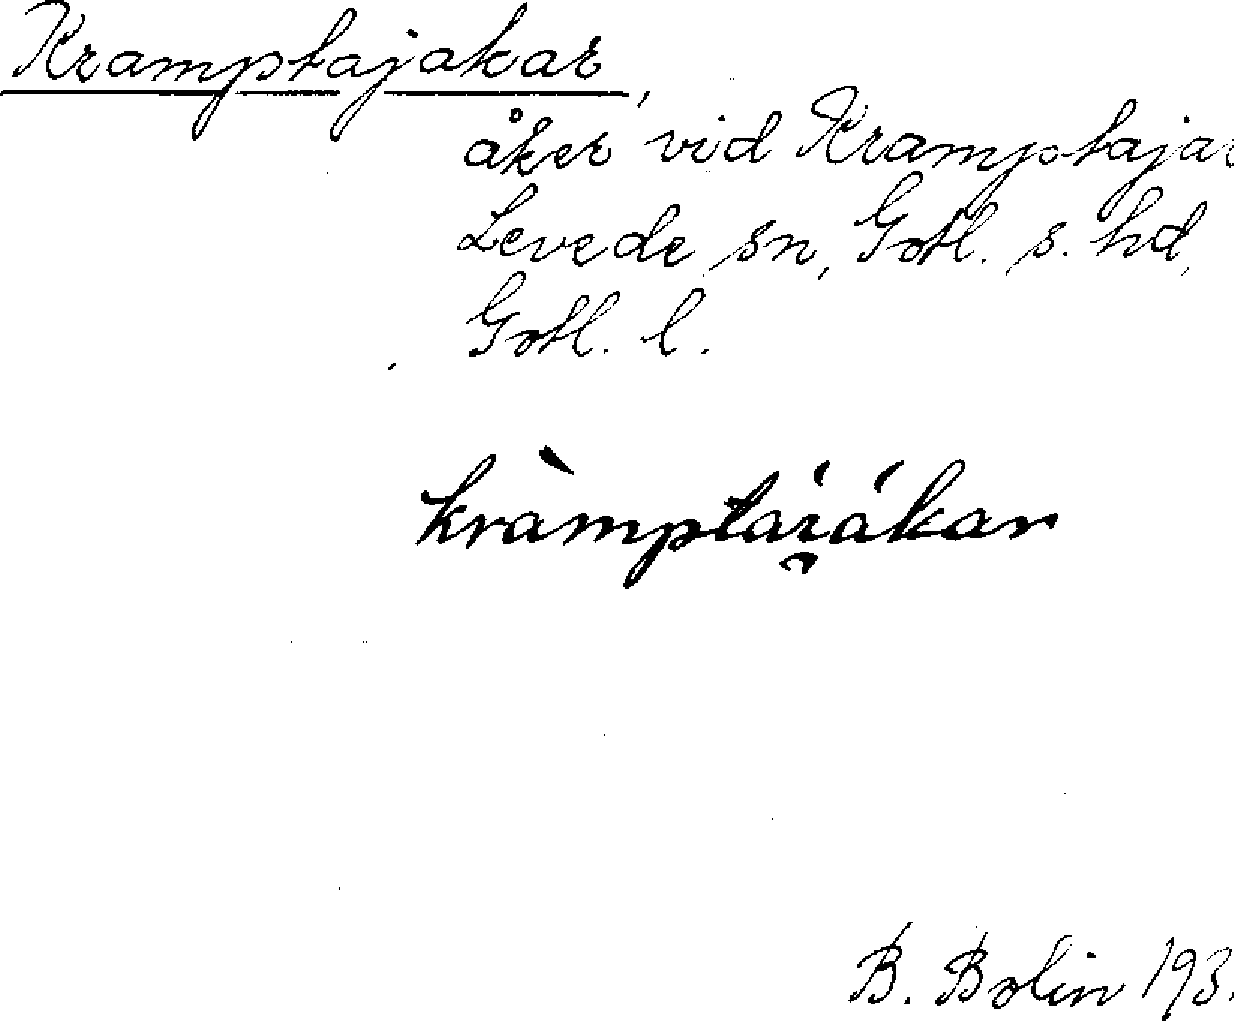 Kramptajakar,
åker vid Kramptajar
Levede sn, Gotl. s. hd,
Gotl. l.
kràmptai̯ákar
B. Bolin 193